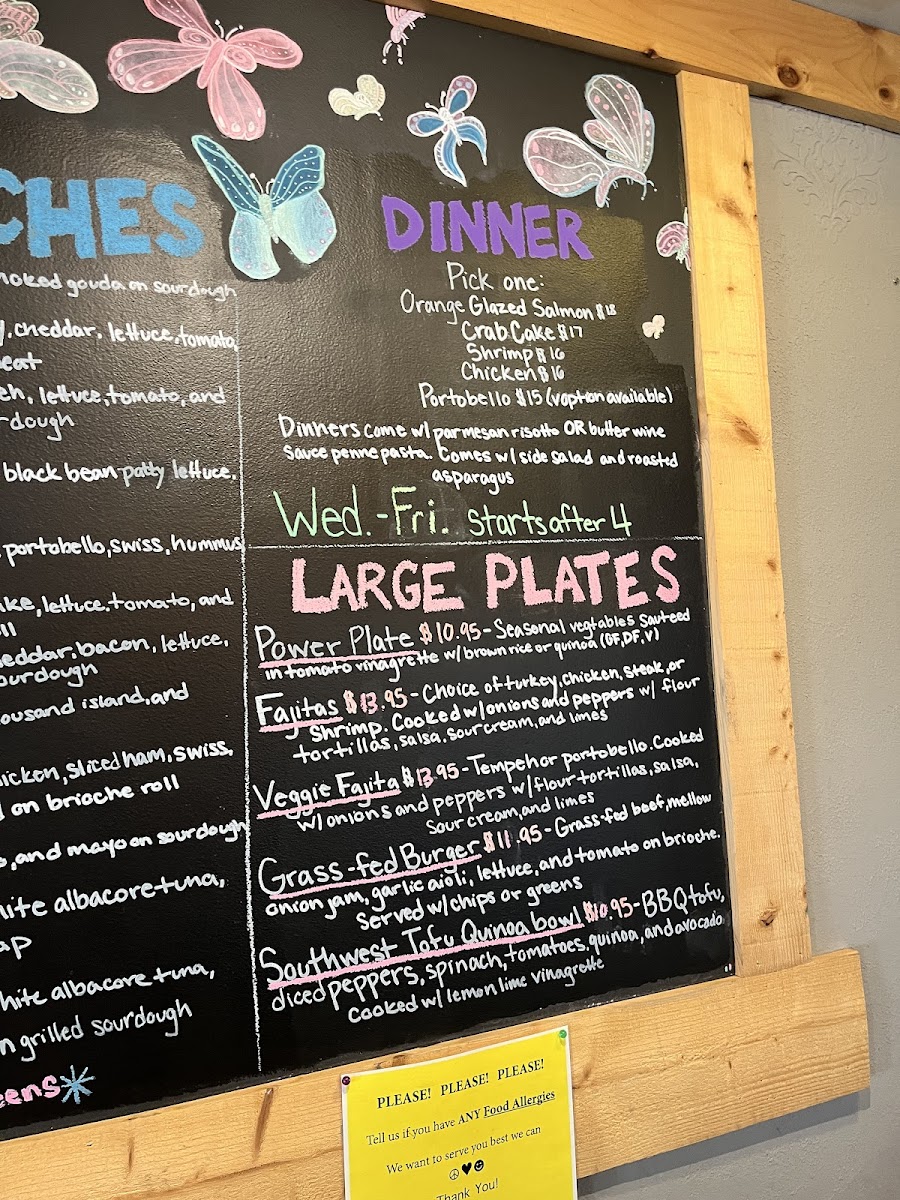 CHES
moked gouda on sourdough
y, cheddar, lettuce, tomato,
eat
eh, lettuce, tomato, and
rdough
black bean patty lettuce,
portobello, swiss, hummus
ake, lettuce, tomato, and
ll
heddar, bacon, lettuce,
ourdough
ousand island, and
hicken, sliced ham, swiss,
on brioche roll
o, and mayo on sourdough
hite albacore tuna,
ap
hite albacore tuna,
n grilled sourdough
eens
DINNER
Pick one:
Orange Glazed Salmon $18
Crab Cake $17
Shrimp $16
Chicken $16
Portobello $15 (v option available)
Dinners come w/ parmesan risotto OR butter wine
sauce penne pasta. Comes w/ side salad and roasted
asparagus
Wed. - Fri. starts after 4
LARGE PLATES
Power Plate $10.95 - Seasonal vegtables sauteed
in tomato vinagrette w/ brown rice or quinoa (GF, DF, V)
Fajitas $13.95 - Choice of turkey, chicken, steak, or
shrimp. Cooked w/ onions and peppers w/ flour
tortillas, salsa, sour cream, and limes
Veggie Fajita $13.95 - Tempeh or portobello. Cooked
w/ onions and peppers w/ flour tortillas, salsa,
sour cream, and limes
Grass-fed Burger $11.95 - Grass-fed beef, mellow
onion jam, garlic aioli, lettuce, and tomato on brioche.
Served w/ chips or greens
Southwest Tofu Quinoa bowl $10.95 - BBQ tofu,
diced peppers, spinach, tomatoes, quinoa, and avocado
Cooked w/ lemon lime vinagrette
PLEASE! PLEASE! PLEASE!
Tell us if you have ANY Food Allergies
We want to serve you best we can
☮♥☻
Thank You!